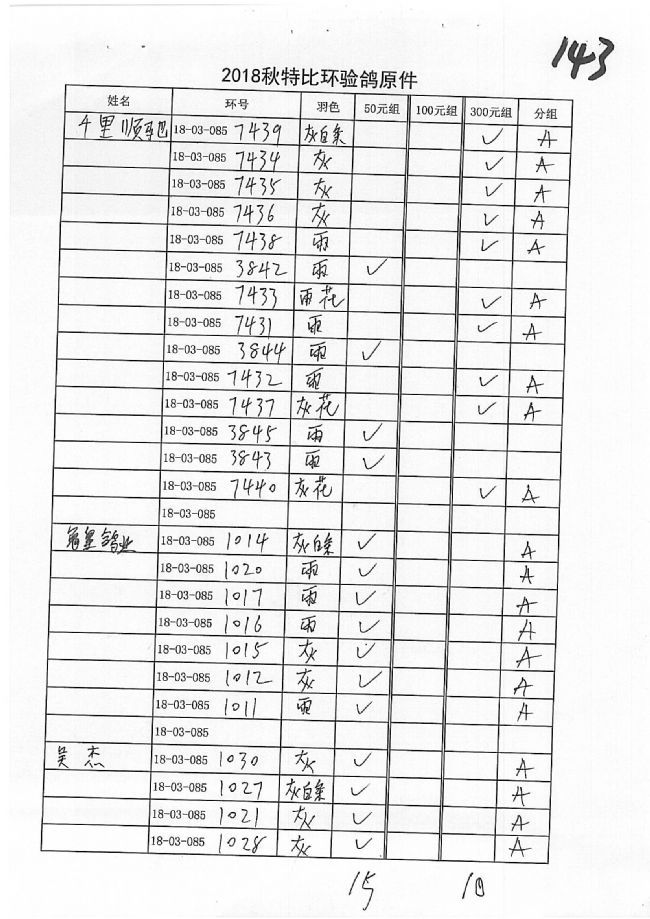 143
2018秋特比环验鸽原件
姓名 环号 羽色 50元组 100元组 300元组 分组
千里顺驰 18-03-085 7439 灰白条 ✓ A
18-03-085 7434 灰 ✓ A
18-03-085 7435 灰 ✓ A
18-03-085 7436 灰 ✓ A
18-03-085 7438 雨 ✓ A
18-03-085 3842 雨 ✓
18-03-085 7433 雨花 ✓ A
18-03-085 7431 雨 ✓ A
18-03-085 3844 雨 ✓
18-03-085 7432 雨 ✓ A
18-03-085 7437 灰花 ✓ A
18-03-085 3845 雨 ✓
18-03-085 3843 雨 ✓
18-03-085 7440 灰花 ✓ A
18-03-085
鸽业 18-03-085 1014 灰白条 ✓ A
18-03-085 1020 雨 ✓ A
18-03-085 1017 雨 ✓ A
18-03-085 1016 雨 ✓ A
18-03-085 1015 灰 ✓ A
18-03-085 1012 灰 ✓ A
18-03-085 1011 雨 ✓ A
18-03-085
吴杰 18-03-085 1030 灰 ✓ A
18-03-085 1027 灰白条 ✓ A
18-03-085 1021 灰 ✓ A
18-03-085 1028 灰 ✓ A
15 10